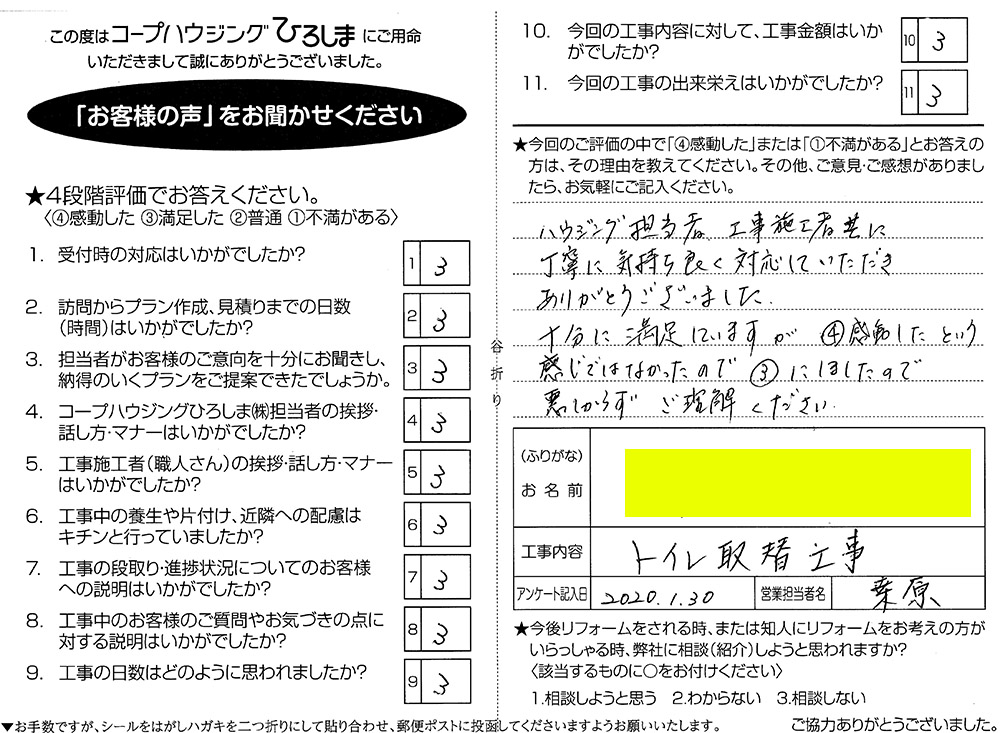 この度はコープハウジングひろしまにご用命
いただきまして誠にありがとうございました。
「お客様の声」をお聞かせください
★4段階評価でお答えください。
〈④感動した ③満足した ②普通 ①不満がある〉
1. 受付時の対応はいかがでしたか?
1 3
2. 訪問からプラン作成、見積りまでの日数
(時間)はいかがでしたか?
2 3
3. 担当者がお客様のご意向を十分にお聞きし、
納得のいくプランをご提案できたでしょうか。
3 3
4. コープハウジングひろしま㈱担当者の挨拶・
話し方・マナーはいかがでしたか?
4 3
5. 工事施工者(職人さん)の挨拶・話し方・マナー
はいかがでしたか?
5 3
6. 工事中の養生や片付け、近隣への配慮は
キチンと行っていましたか?
6 3
7. 工事の段取り・進捗状況についてのお客様
への説明はいかがでしたか?
7 3
8. 工事中のお客様のご質問やお気づきの点に
対する説明はいかがでしたか?
8 3
9. 工事の日数はどのように思われましたか?
9 3
谷折り
10. 今回の工事内容に対して、工事金額はいか
がでしたか?
10 3
11. 今回の工事の出来栄えはいかがでしたか?
11 3
★今回のご評価の中で「④感動した」または「①不満がある」とお答えの
方は、その理由を教えてください。その他、ご意見・ご感想がありまし
たら、お気軽にご記入ください。
ハウジング担当者、工事施工者共に
丁寧に気持ち良く対応していただき
ありがとうございました.
十分に満足していますが ④感動したという
感じではなかったので ③にしましたので
悪しからず ご理解ください.
(ふりがな)
お名前
工事内容 トイレ取替工事
アンケート記入日 2020.1.30 営業担当者名 桒原
★今後リフォームをされる時、または知人にリフォームをお考えの方が
いらっしゃる時、弊社に相談(紹介)しようと思われますか?
〈該当するものに○をお付けください〉
1.相談しようと思う 2.わからない 3.相談しない
▼お手数ですが、シールをはがしハガキを二つ折りにして貼り合わせ、郵便ポストに投函してくださいますようお願いいたします。
ご協力ありがとうございました。